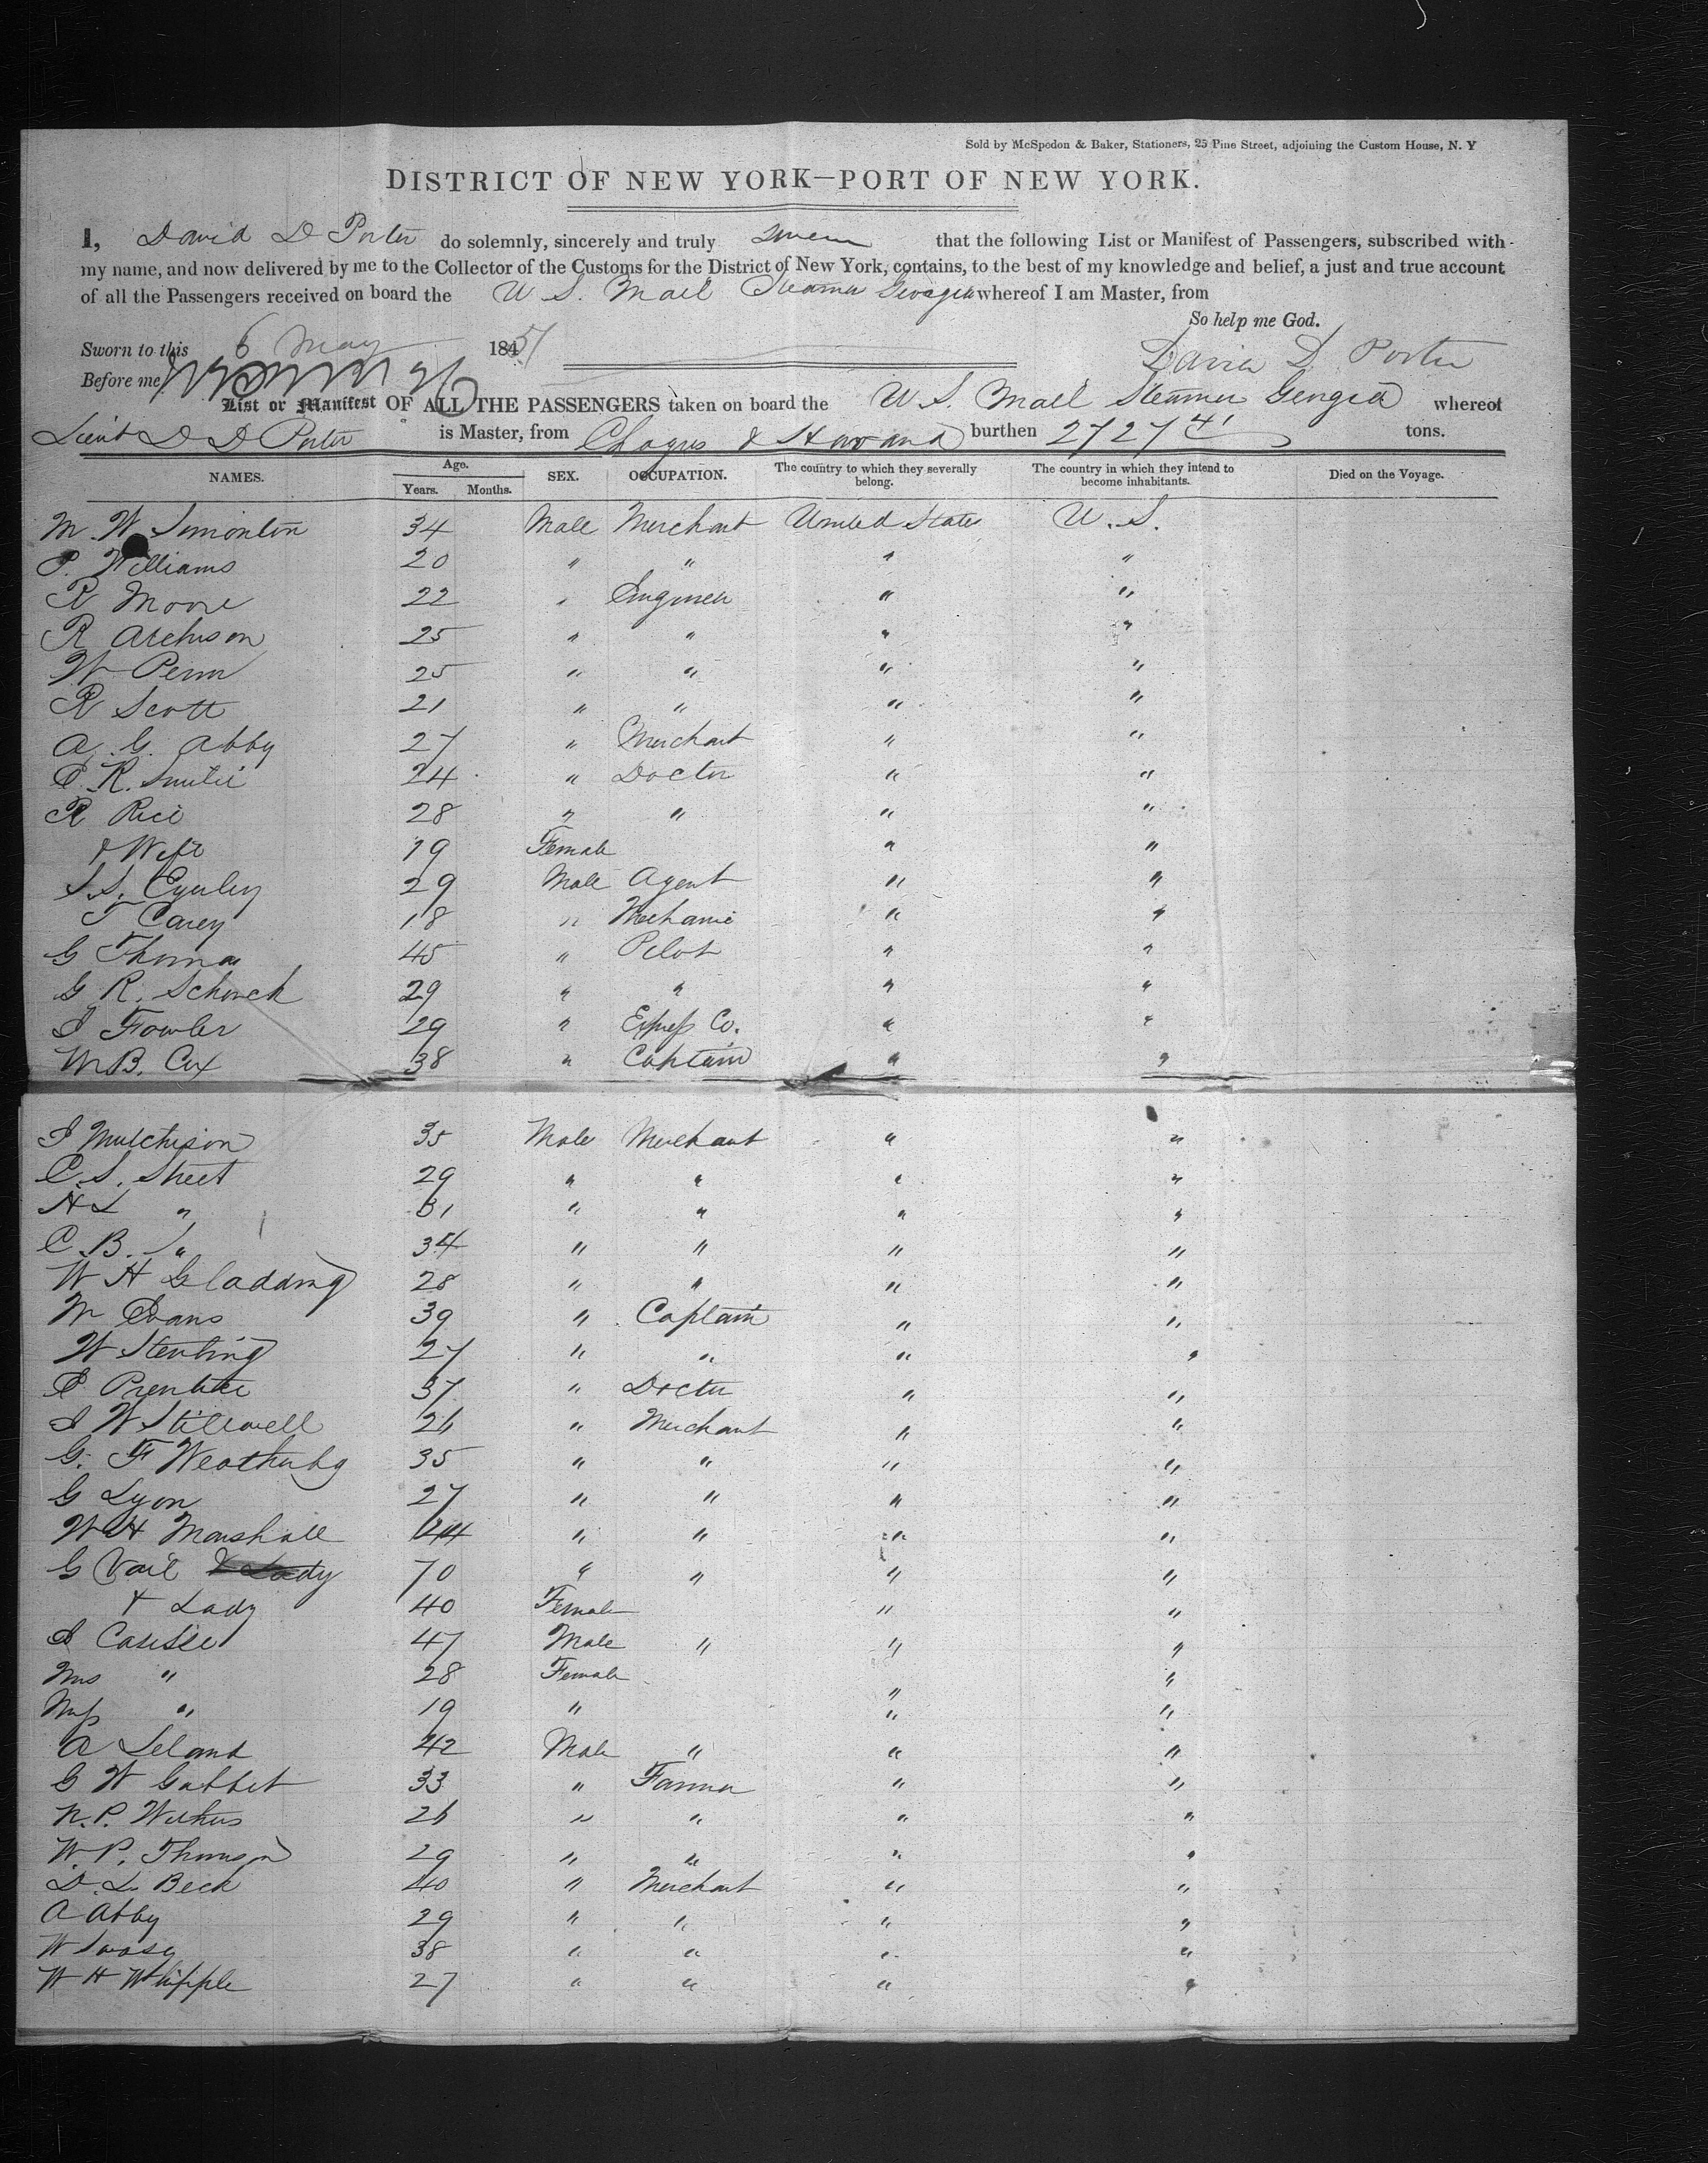 Sold by McSpedon & Baker, Stationers, 25 Pine Street, adjoining the Custom House, N. Y
DISTRICT OF NEW YORK—PORT OF NEW YORK.
I, David D Porter do solemnly, sincerely and truly swear that the following List or Manifest of Passengers, subscribed with
my name, and now delivered by me to the Collector of the Customs for the District of New York, contains, to the best of my knowledge and belief, a just and true account
of all the Passengers received on board the U S. Mail Steamer Georgia whereof I am Master, from
So help me God.
Sworn to this 6 May 1851
David D. Porter
Before me
List or Manifest OF ALL THE PASSENGERS taken on board the U S. Mail Steamer Georgia whereof
Lieut D D Porter is Master, from Chagres & Havana burthen 2727 41 tons.
NAMES. Age. Years. Months. SEX. OCCUPATION. The country to which they severally belong. The country in which they intend to become inhabitants. Died on the Voyage.
M. W Simonton 34 Male Merchant United States U. S.
P. Williams 20 " " " "
R Moore 22 " Engineer " "
R Atchison 25 " " " "
W Penn 25 " " " "
R Scott 21 " " " "
A. G. Abby 27 " Merchant " "
R. Smilie 24 " Doctor " "
R Rice 28 " " " "
& Wife 19 Female " "
S. S. 29 Male Agent " "
T Carey 18 " Mechanic " "
G Thomas 45 " Pilot " "
G R. Schenck 29 " " " "
J Fowler 29 " Express Co. " "
W B. Cox 38 " Captain " "
J Mutchison 35 Male Merchant " "
C. S. Street 29 " " " "
H L " 31 " " " "
C. B. " 34 " " " "
W H Gladding 28 " " " "
M Evans 39 " Captain " "
W Sterling 27 " " " "
Prentice 37 " Doctor " "
J W Stillwell 26 " Merchant " "
G. F Weatherby 35 " " " "
G Lyon 27 " " " "
W H Marshall 44 " " " "
G Vail & Lady 70 " " " "
& Lady 40 Female " "
J 47 Male " " "
Mrs " 28 Female " "
Miss " 19 " " "
A Leland 42 Male " " "
G W Gabbet 33 " Farmer " "
N. P. 26 " " " "
W. P. Thomson 29 " " " "
D. L. Beck 40 " Merchant " "
A Abby 29 " " " "
W 38 " " " "
W H Whipple 27 " " " "